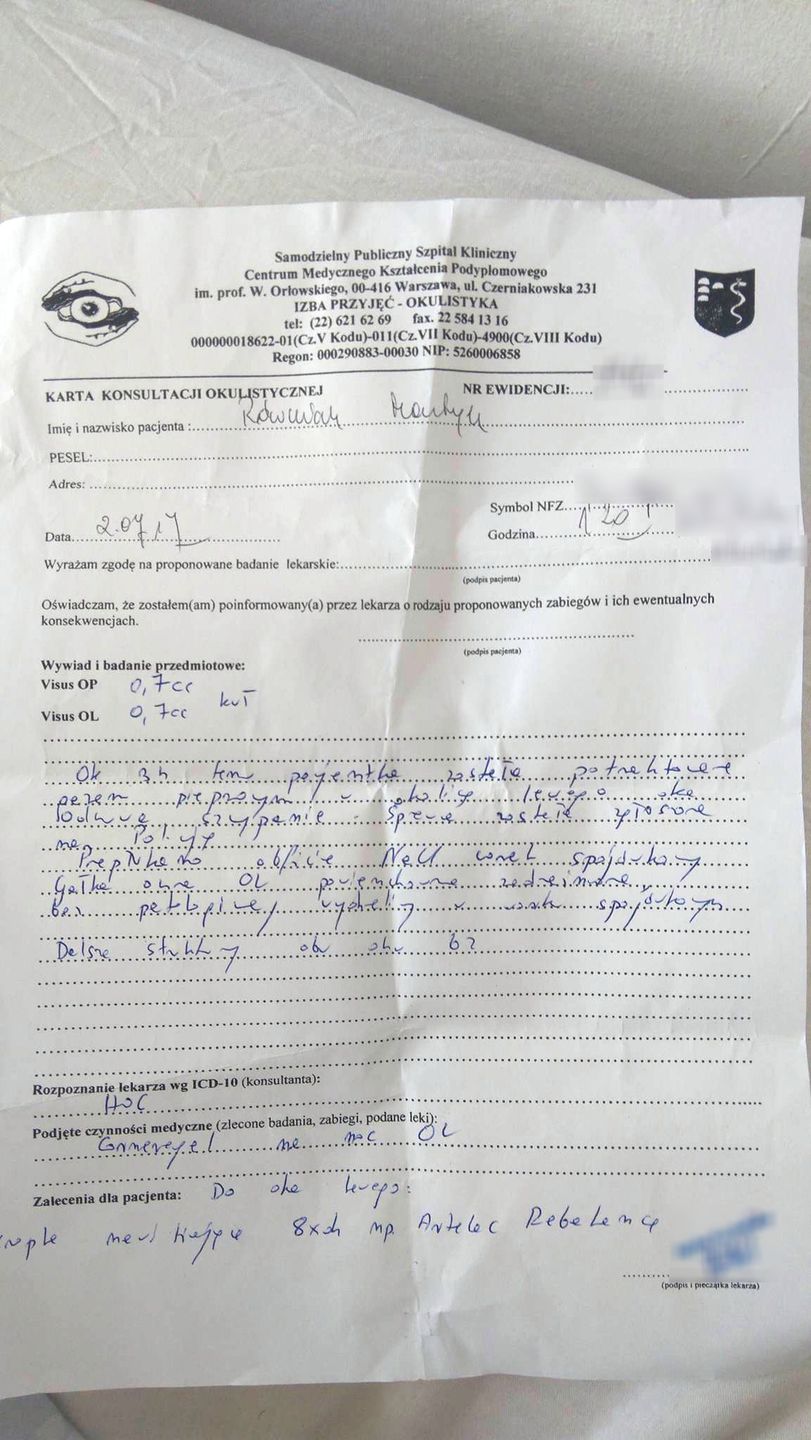 Samodzielny Publiczny Szpital Kliniczny
Centrum Medycznego Kształcenia Podyplomowego
im. prof. W. Orłowskiego, 00-416 Warszawa, ul. Czerniakowska 231
IZBA PRZYJĘĆ - OKULISTYKA
tel: (22) 621 62 69 fax. 22 584 13 16
000000018622-01(Cz.V Kodu)-011(Cz.VII Kodu)-4900(Cz.VIII Kodu)
Regon: 000290883-00030 NIP: 5260006858
KARTA KONSULTACJI OKULISTYCZNEJ NR EWIDENCJI:
Imię i nazwisko pacjenta :
PESEL:
Adres:
Symbol NFZ
Data 2.07.17 Godzina
Wyrażam zgodę na proponowane badanie lekarskie:
(podpis pacjenta)
Oświadczam, że zostałem(am) poinformowany(a) przez lekarza o rodzaju proponowanych zabiegów i ich ewentualnych
konsekwencjach.
(podpis pacjenta)
Wywiad i badanie przedmiotowe:
Visus OP 0,7cc
Visus OL 0,7cc
Ok 3h temu pacjentka została potraktowana
gazem pieprzowym w okolicy lewego oka
szczypanie. Sprawa została zgłoszona
na Policję
Przepłukano obficie NaCl worek spojówkowy
Gałka oczna OL powierzchowne zadrażnienie,
bez patologicznej wydzieliny w worku spojówkowym
Dalsze struktury obu oku bz
Rozpoznanie lekarza wg ICD-10 (konsultanta):
Podjęte czynności medyczne (zlecone badania, zabiegi, podane leki):
Corneregel na noc OL
Zalecenia dla pacjenta: Do oka lewego:
krople nawilżające 8xdz np. Artelac Rebalance
(podpis i pieczątka lekarza)